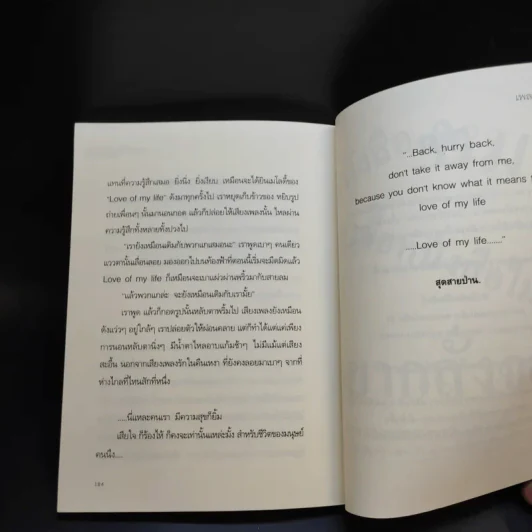 แทนที่ความรู้สึกเสมอ ยิ่งนิ่ง ยิ่งเงียบ เหมือนจะได้ยินเมโลดี้ของ
"Love of my life" ดังมาทุกครั้งไป เราหยุดเก็บข้าวของ หยิบรูป
ถ่ายเพื่อนๆ นั้นมานอนกอด แล้วก็ปล่อยให้เสียงเพลงนั้น ไหลผ่าน
ความรู้สึกทั้งหลายทั้งปวงไป
"เรายังเหมือนเดิมกับพวกแกเสมอนะ" เราพูดเบาๆ คนเดียว
แววตานั้นเลื่อนลอย มองออกไปบนท้องฟ้าที่ตอนนี้เริ่มจะมืดมิดแล้ว
Love of my life ก็เหมือนจะเบาแผ่วผ่านพริ้วมากับสายลม
"แล้วพวกแกล่ะ จะยังเหมือนเดิมกับเรามั้ย"
เราพูด แล้วก็กอดรูปนั้นหลับตาพริ้มไป เสียงเพลงยังเหมือน
ดังแว่วๆ อยู่ใกล้ๆ เราปล่อยตัวให้ผ่อนคลาย แต่ก็ทำได้แค่แค่เพียง
การนอนหลับตานิ่งๆ มีน้ำตาไหลอาบแก้มช้าๆ ไม่มีแม้แต่เสียง
สะอื้น นอกจากเสียงเพลงรักในคืนเหงา ที่ยังคงลอยมาเบาๆ จากที่
ห่างไกลที่ไหนสักที่หนึ่ง
.....นี่แหละคนเรา มีความสุขก็ยิ้ม
เสียใจ ก็ร้องไห้ ก็คงจะเท่านั้นแหละมั้ง สำหรับชีวิตของมนุษย์
คนนึง....
184
"...Back, hurry back,
don't take it away from me,
because you don't know what it means
love of my life
.....Love of my life......"
สุดสายป่าน.